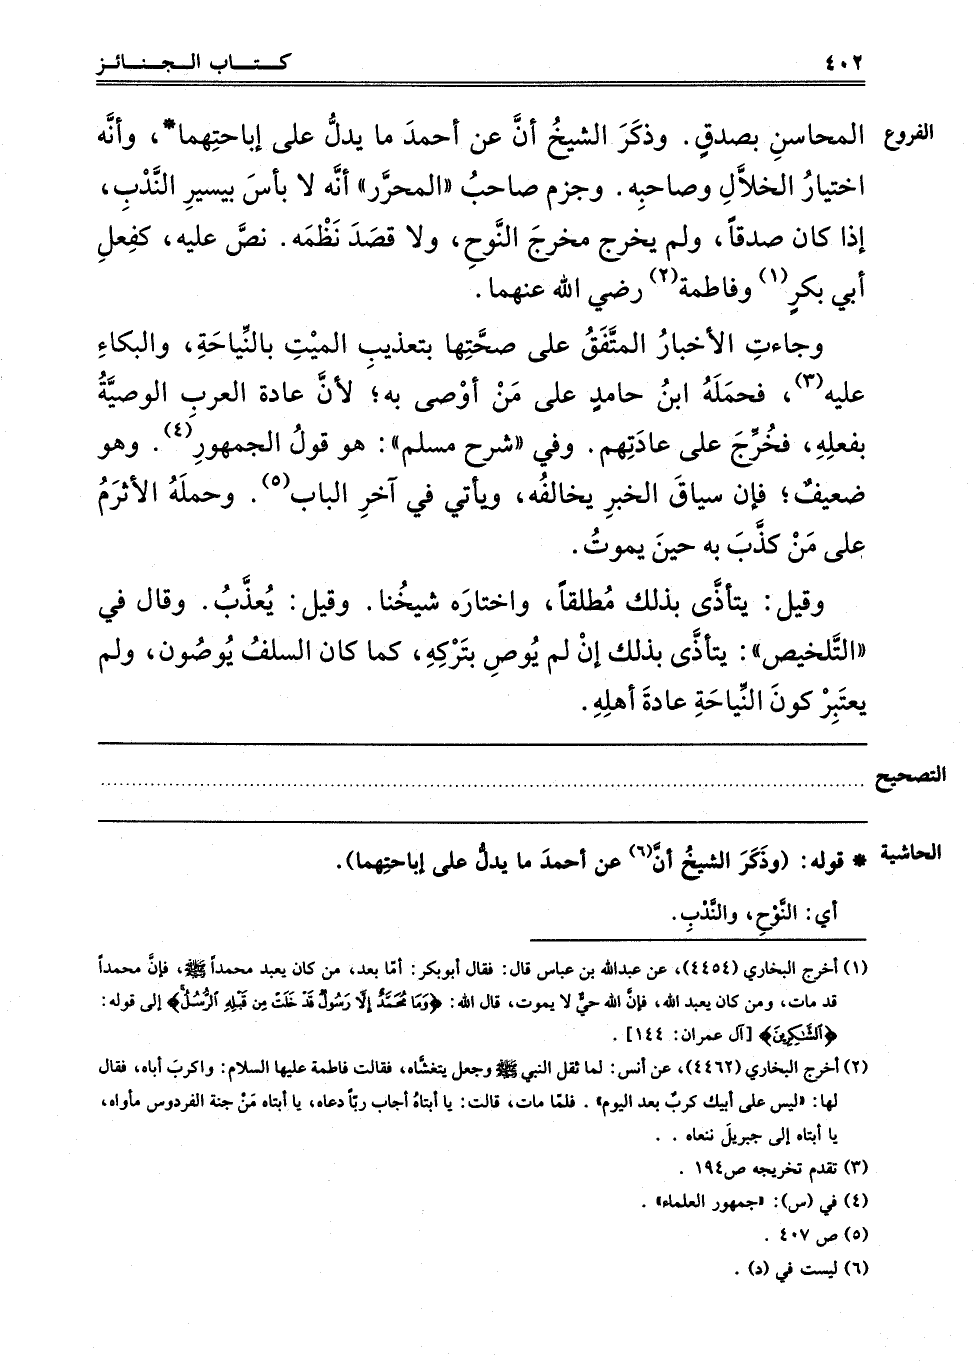 ٤٠٢
كـتـاب الـجـنـائـز
الفروع
المحاسنِ بصدقٍ. وذكَرَ الشيخُ أنَّ عن أحمدَ ما يدلُّ على إباحتِهما*، وأنَّه
اختيارُ الخلَّالِ وصاحبِه. وجزم صاحبُ «المحرَّر» أنَّه لا بأسَ بيسيرِ النَّدْبِ،
إذا كان صدقاً، ولم يخرج مخرجَ النَّوحِ، ولا قصَدَ نَظْمَه. نصَّ عليه، كفِعلِ
أبي بكرٍ(١) وفاطمة(٢) رضي الله عنهما.
وجاءتِ الأخبارُ المتَّفَقُ على صحَّتِها بتعذيبِ الميْتِ بالنِّياحَةِ، والبكاءِ
عليه(٣)، فحمَلَهُ ابنُ حامدٍ على مَنْ أوْصى به؛ لأنَّ عادة العربِ الوصيَّةُ
بفعلِهِ، فخُرِّجَ على عادَتِهم. وفي «شرح مسلم»: هو قولُ الجمهورِ(٤). وهو
ضعيفٌ؛ فإن سياقَ الخبرِ يخالفُه، ويأتي في آخرِ الباب(٥). وحملَهُ الأثرَمُ
على مَنْ كذَّبَ به حينَ يموتُ.
وقيل: يتأذَّى بذلك مُطلقاً، واختارَه شيخُنا. وقيل: يُعذَّبُ. وقال في
«التَّلخيص»: يتأذَّى بذلك إنْ لم يُوصِ بتَرْكِهِ، كما كان السلفُ يُوصُون، ولم
يعتَبِرْ كونَ النِّياحَةِ عادةَ أهلِهِ.
التصحيح
الحاشية
* قوله: (وذَكَرَ الشيخُ أنَّ(٦) عن أحمدَ ما يدلُّ على إباحتِهما).
أي: النَّوْحِ، والنَّدْبِ.
(١) أخرج البخاري (٤٤٥٤)، عن عبدالله بن عباس قال: فقال أبوبكر: أمّا بعد، من كان يعبد محمداً ﷺ، فإنَّ محمداً
قد مات، ومن كان يعبد الله، فإنَّ الله حيٌّ لا يموت، قال الله: ﴿وَمَا مُحَمَّدٌ إِلَّا رَسُولٌ قَدْ خَلَتْ مِن قَبْلِهِ ٱلرُّسُلُ﴾ إلى قوله:
﴿ٱلشَّٰكِرِينَ﴾ [آل عمران: ١٤٤] .
(٢) أخرج البخاري (٤٤٦٢)، عن أنس: لما ثقل النبي ﷺ وجعل يتغشَّاه، فقالت فاطمة عليها السلام: واكربَ أباه، فقال
لها: «ليس على أبيك كربٌ بعد اليوم» . فلمّا مات، قالت: يا أبتاهُ أجاب ربّاً دعاه، يا أبتاه مَنْ جنة الفردوس مأواه،
يا أبتاه إلى جبريلَ ننعاه . .
(٣) تقدم تخريجه ص١٩٤ .
(٤) في (س): «جمهور العلماء» .
(٥) ص ٤٠٧ .
(٦) ليست في (د) .